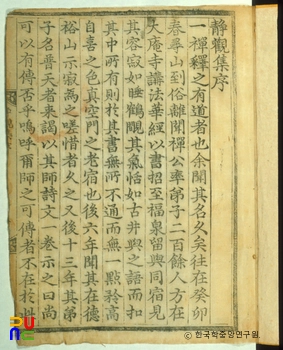 静觀集序
一禪釋之有道者也余聞其名久矣往在癸卯
春尋山到俗離聞禪公率弟子二百餘人方在
大庵寺講法華經以書招至福泉留與同宿見
其容寂如睡鶴覸其氣怡如古井與之語而扣
其中所有則於其書無所不通而無一點矜高
自喜之色真空門之老宿也後六年聞其在德
裕山示寂爲之嗟惜者久之又後十三年其弟
子名普天者來謁以其師詩文一卷示之曰尚
可以有傳否乎嗚呼爾師之可傳者不在於此
한국학중앙연구원